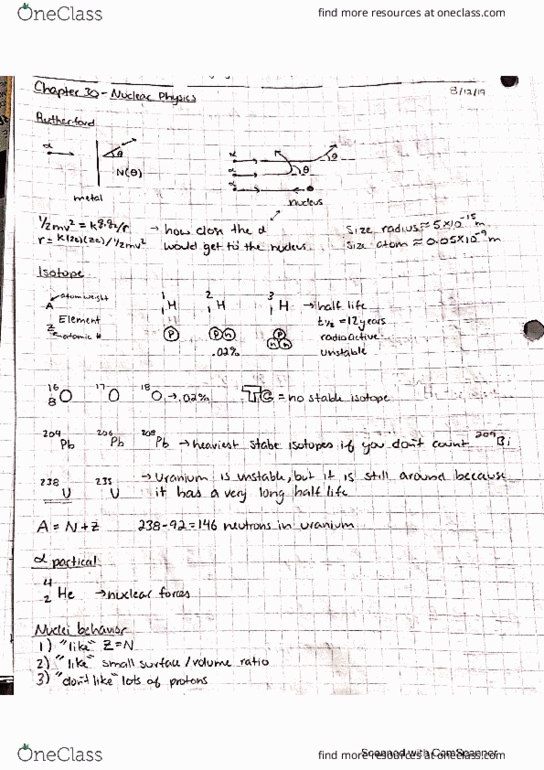 OneClass
find more resources at oneclass.com
Chapter 30 - Nuclear Physics
8/12/19
Rutherford
α
θ
N(θ)
metal
α
α
α
θ
θ
nucleus
½mv² = k q₁q₂/r → how close the α
r = k(2e)(Ze)/½mv² would get to the nucleus.
Size radius ≈ 5×10⁻¹⁵ m
Size atom ≈ 0.05×10⁻⁹ m
Isotope
A atom weight
Element
Z atomic #
¹₁H ²₁H ³₁H → half life
t½ = 12 years
radioactive
unstable
P
P n
P n n
.02%
¹⁶₈O ¹⁷O ¹⁸O → .02% Tc = no stable isotope
²⁰⁴Pb ²⁰⁶Pb ²⁰⁸Pb → heaviest stabe isotopes if you don't count ²⁰⁹Bi
²³⁸U ²³⁵U → Uranium is unstable, but it is still around because
it has a very long half life
A = N + Z 238 - 92 = 146 neutrons in uranium
α partical
⁴₂He → nuclear forces
Nuclei behavior
1) "like" Z = N
2) "like" small surface / volume ratio
3) "don't like" lots of protons
OneClass
find more resources at oneclass.com
Scanned with CamScanner